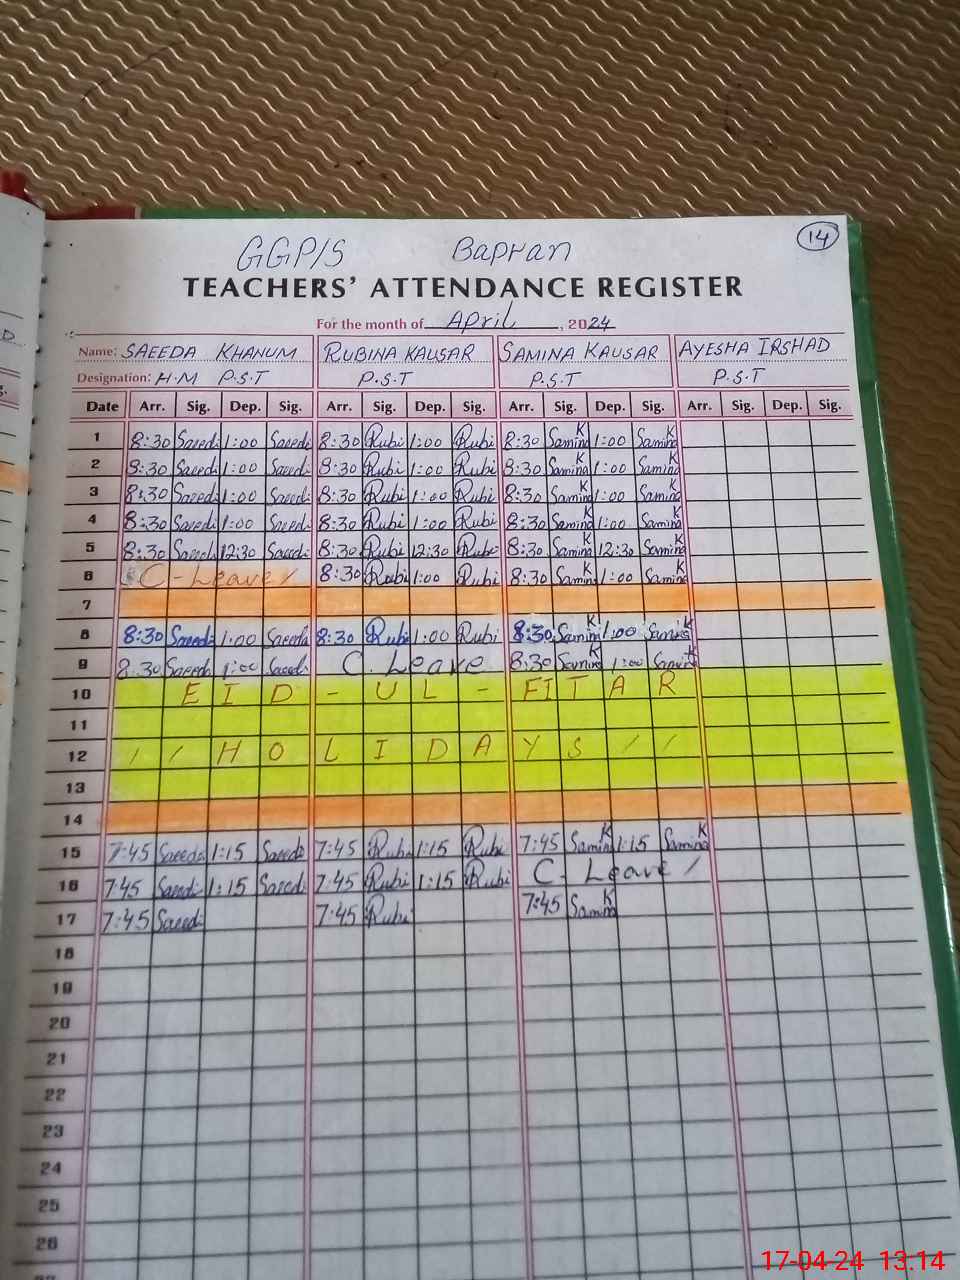 14
GGP/S Bapran
TEACHERS' ATTENDANCE REGISTER
For the month of April, 2024
Name: SAEEDA KHANUM RUBINA KAUSAR SAMINA KAUSAR AYESHA IRSHAD
Designation: H.M P.S.T P.S.T P.S.T P.S.T
Date Arr. Sig. Dep. Sig. Arr. Sig. Dep. Sig. Arr. Sig. Dep. Sig. Arr. Sig. Dep. Sig.
1 8:30 Saeeda 1:00 Saeeda 8:30 Rubi 1:00 Rubi 8:30 Samina K 1:00 Samina K
2 8:30 Saeeda 1:00 Saeeda 8:30 Rubi 1:00 Rubi 8:30 Samina K 1:00 Samina K
3 8:30 Saeeda 1:00 Saeeda 8:30 Rubi 1:00 Rubi 8:30 Samina K 1:00 Samina K
4 8:30 Saeeda 1:00 Saeeda 8:30 Rubi 1:00 Rubi 8:30 Samina K 1:00 Samina K
5 8:30 Saeeda 12:30 Saeeda 8:30 Rubi 12:30 Rubi 8:30 Samina K 12:30 Samina K
6 C-Leave/ 8:30 Rubi 1:00 Rubi 8:30 Samina K 1:00 Samina K
7
8 8:30 Saeeda 1:00 Saeeda 8:30 Rubi 1:00 Rubi 8:30 Samina K 1:00 Samina K
9 8:30 Saeeda 1:00 Saeeda C. Leave 8:30 Samina K 1:00 Samina K
10 EID - UL - FITAR
11
12 / / HOLIDAYS / /
13
14
15 7:45 Saeeda 1:15 Saeeda 7:45 Rubi 1:15 Rubi 7:45 Samina K 1:15 Samina K
16 7:45 Saeeda 1:15 Saeeda 7:45 Rubi 1:15 Rubi C. Leave /
17 7:45 Saeeda 7:45 Rubi 7:45 Samina K
18
19
20
21
22
23
24
25
26
17-04-24 13:14